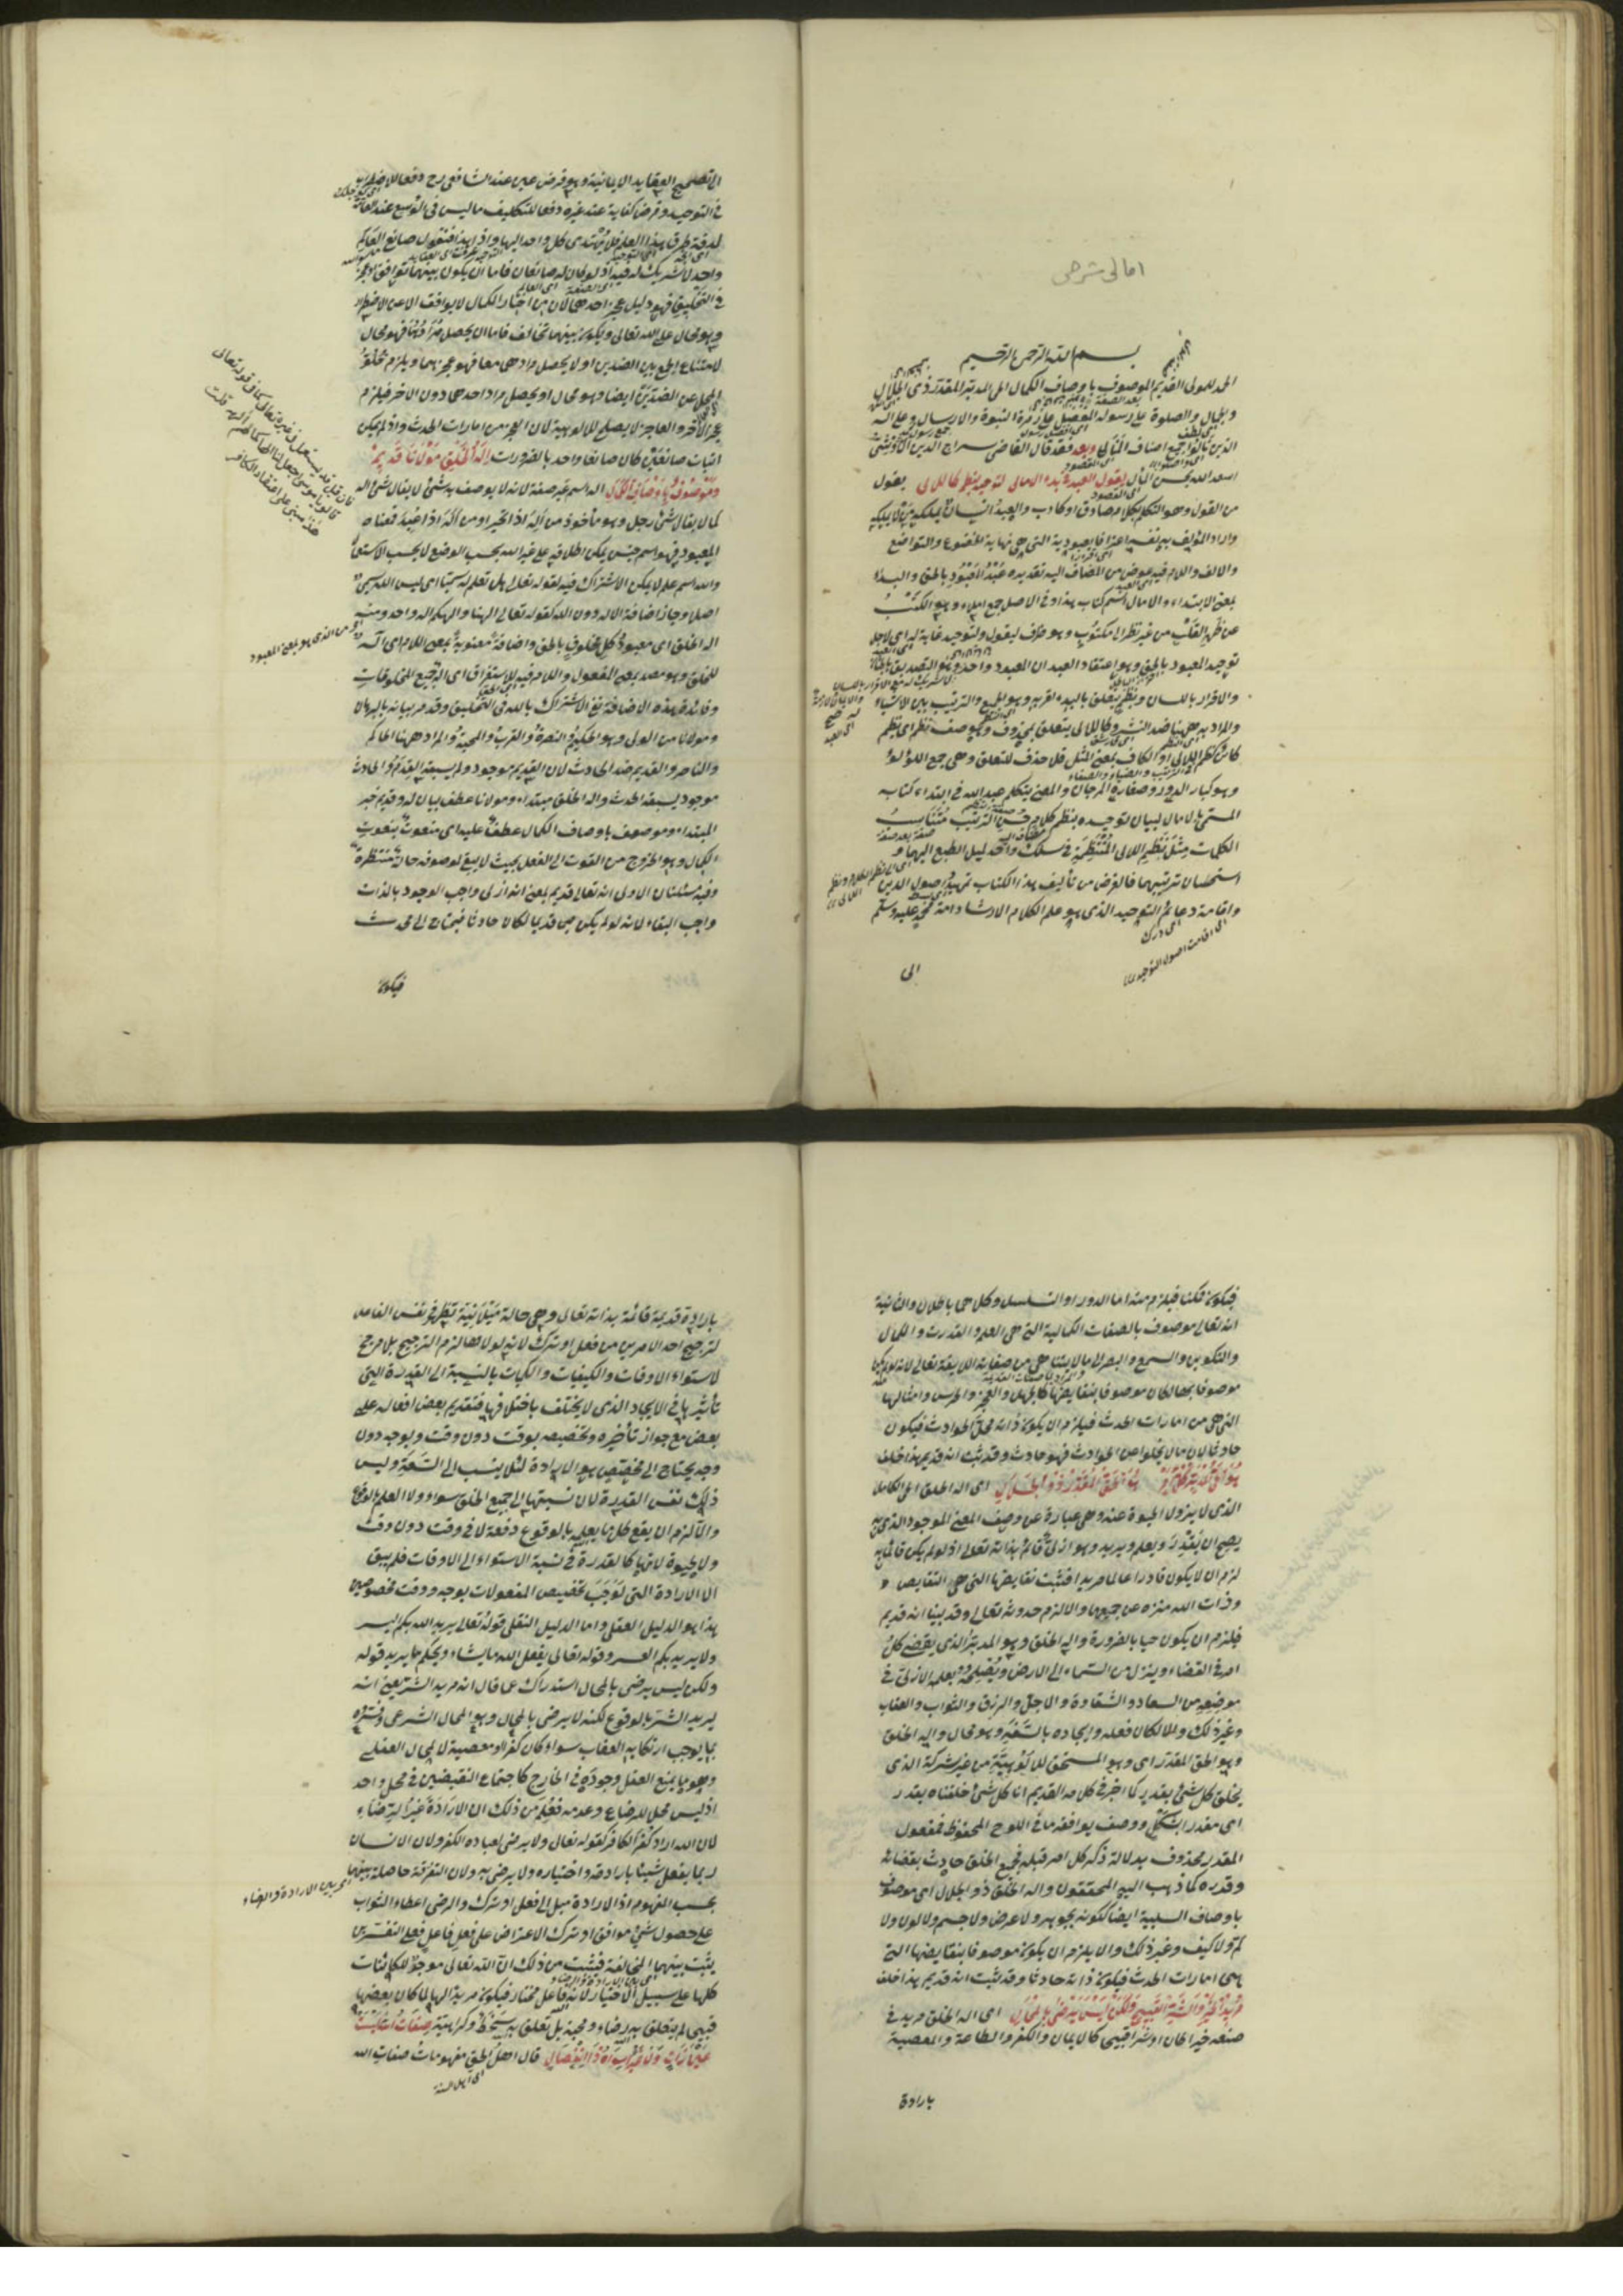 امالى شرحى
بسم الله الرحمن الرحيم
الحمد للمولى القديم الموصوف باوصاف الكمال الحى المدبر المقدر ذى الجلال
والجمال والصلوة على رسوله المفضل على زمرة النبوة والارسال وعلى اله
الذين نالوا جميع اصناف المنالى وبعد فقد قال القاضى سراج الدين الاوشى
اسعد الله بحسن المآل يقول العبد فى بدء الامالى لتوحيد بنظم كاللالى يقول
من القول وهو التكلم بكلام صادق او كاذب والعبد انسان يملكه من يملكه
واراد المؤلف به نفسه اعترافا بعبودية التى هى نهاية الخضوع والتواضع
والالف واللام فيه عوض من المضاف اليه تقديره عبد المعبود بالحق والبدأ
بمعنى الابتداء والامالى اسم كتاب هذا وفى الاصل جمع املاء وهو الكتب
عن ظهر القلب من غير نظر الى مكتوب وهو ظرف ليقول ولتوحيد غاية له اى لاجل
توحيد المعبود بالحق وهو اعتقاد العبد ان المعبود واحد وهو التصديق بالجنان
والاقرار باللسان وبنظم يتعلق بالبدء لقربه وهو الجمع والترتيب بين الاشياء
والمراد به ههنا ضد النثر وكاللالى يتعلق بمحذوف وهو صفة نظم اى نظم
كائن كنظم اللالى او الكاف بمعنى المثل فلا حذف للتعلق وهى جمع اللؤلؤ
وهو كبار الدور وصغاره المرجان والمعنى يتكلم عبد الله فى ابتداء كتابه
المسمى بالامالى لبيان توحيده بنظم كلام حسن الترتيب متناسب
الكلمات مثل نظم اللالى المنتظمة فى سلك واحد ليميل الطبع اليها و
استحسان ترتيبهما فالغرض من تأليف هذا الكتاب تمهيد اصول الدين
واقامة دعائم التوحيد الذى هو علم الكلام الارشاد امة محمد عليه وسلم
اى اقامت اصول التوحيد
الى
الى تصحيح العقايد الايمانية وهو فرض عين عند الشافعى رح دفعا للاضطراب
فى التوحيد وفرض كفاية عند غيره دفعا للتكليف ما ليس فى الوسع عند العامة
لدقة طرق هذا العلم فلا يهتدى كل واحد اليها واذا بهذا فنقول صانع العالم
واحد لا شريك له فيه اذ لو كان له صانعان فاما ان يكون بينهما توافق او عجز
فى التخليق فهو دليل عجز احدهما لان من اختار الكمال لا يوافق الا عن الاضطرار
وهو محال على الله تعالى ويكون بينهما تخالف فاما ان يحصل مرادهما فهو محال
لامتناع الجمع بين الضدين او لا يحصل مرادهما معا فهو عجزهما ويلزم خلو
المحل عن الضدين ايضا وهو محال او يحصل مراد احدهما دون الاخر فيلزم
عجز الاخر والعاجز لا يصلح للالوهية لان العجز من امارات الحدث واذ لم يمكن
اثبات صانعين كان صانعا واحد بالضرورات اله الخلق مولانا قديم
وموصوف باوصاف الكمال اله اسم غير صفة لانه لا يوصف به شئ لا يقال شئ اله
كما لا يقال شئ رجل وهو مأخوذ من اله اذا تحير او من اله اذا عبد فمعناه
المعبود فهو اسم جنس يمكن اطلاقه على غير الله بحسب الوضع لا بحسب الاستعما
والله اسم علم لا يمكن الاشتراك فيه لقوله تعالى هل تعلم له سميا اى ليس الله سمى
اصلا وجاز اضافة الاله دون الله كقوله تعالى الهنا والهكم اله واحد ومنه
اله الخلق اى معبود كل مخلوق بالحق واضافة معنوية بمعنى اللام اى اله
للخلق وهو مصدر بمعنى المفعول واللام فيه للاستغراق اى اله جميع المخلوقات
وفائدة هذه الاضافة نفى الاشتراك بالله فى التخليق وقد مر بيانه بالبرهان
ومولانا من الولى وهو الحكيم والنصرة والقرب والمحبة والمراد ههنا الحاكم
والناصر والقديم ضد الحادث لان القديم موجود ولم يسبقه القدم والحادث
موجود يسبقه الحدث واله الخلق مبتداء ومولانا عطف بيان له وقديم خبر
المبتداء وموصوف باوصاف الكمال عطف عليه اى منعوت بنعوت
الكمال وهو الخروج من القوت الى الفعل بحيث لا يبقى لموصوفه حالة منتظرة
وفيه مسئلتان الاولى انه تعالى قديم بمعنى انه ازلى واجب الوجود بالذات
واجب البقاء لانه لو لم يكن حين قديما لكان حادثا فيحتاج الى محدث
فان قيل قد يستعمل فى غيره تعالى كما فى قوله تعالى
قالوا يا موسى اجعل لنا الها كما لهم آلهة قلت
هذا مبنى على اعتقاد الكافر
من الذى هو بمعنى المعبود
فيكون
فيكون ممكنا فيلزم منه اما الدور او التسلسل وكلاهما باطلان والثانية
انه تعالى موصوف بالصفات الكمالية التى هى العلم والقدرت والكمال
والتكوين والسمع والبصر الى ما لا يتناهى من صفاته اللايقة تعالى لانه لو لم يكن
موصوفا بها لكان موصوفا بنقايضها كالجهل والعجز والخرس وامثالها
التى هى من امارات الحدث فيلزم ان يكون ذاته محل الحوادث فيكون
حادثا لان ما لا يخلوا عن الحوادث فهو حادث وقد ثبت انه قديم هذا خلف
هو الحى المدبر كل امر هو الحق المقدر ذو الجلال اى اله الخلق الحى الكامل
الذى لا يزول الحيوة عنه وهى عبارة عن وصف المعنى الموجود الذى به
يصح ان يقدر ويعلم ويريد وهو ازلى قائم بذاته تعالى اذ لو لم يكن قائما به
لزم ان لا يكون قادرا عالما مريدا فتثبت نقايضها التى هى النقايص
وذات الله منزه عن جميعها والا لزم حدوثه تعالى وقد بينا انه قديم
فيلزم ان يكون حيا بالضرورة واله الخلق وهو المدبر الذى يقضى كل
امر فى القضاء وينزل من السماء الى الارض ويضعه بعلمه الازلى فى
موضعه من السعادة والشقاوة والاجل والرزق والثواب والعقاب
وغير ذلك والا لكان فعله وايجاده بالتغير وهو محال واله الخلق
وهو الحق المقدر اى وهو المستحق للالوهية من غير شركة الذى
يخلق كل شئ بقدر كما اخبر فى كلامه القديم انا كل شئ خلقناه بقدر
اى مقدر بشكل ووصف يوافقه ما فى اللوح المحفوظ فمفعول
المقدر محذوف بدلالة ذكر كل امر قبله فجميع الخلق حادث بقضائه
وقدره كما ذهب اليه المحققون واله الخلق ذو الجلال اى موصوف
باوصاف السلبية ايضا ككونه بجوهر ولا عرض ولا جسم ولا لون ولا
كم ولا كيف وغير ذلك والا يلزم ان يكون موصوفا بنقايضها التى
هى امارات الحدث فيكون ذاته حادثا وقد ثبت انه قديم هذا خلف
مريد الخير والشر القبيح ولكن ليس يرضى بالمحال اى اله الخلق مريد فى
صنعه خيرا كان او شرا قبيحى كالايمان والكفر والطاعة والمعصية
بارادة
بارادة قديمة قائمة بذاته تعالى وهى حالة ميلانية تظهر فى نفس الفاعل
لترجيح احد الامرين من فعل او ترك لانه لولاها لزم الترجيح بلا مرجح
لاستواء الاوقات والكيفيات والكميات بالنسبة الى القدرة التى
تأثيرها فى الايجاد الذى لا يختلف باختلافها فتقديم بعض افعاله على
بعض مع جواز تأخيره وتخصيصه بوقت دون وقت وبوجه دون
وجه يحتاج الى مخصص هو الارادة لئلا ينسب الى السفه وليس
ذلك نفس القدرة لان نسبتها الى جميع الخلق سواء ولا العلم بالوقوع
والا لزم ان يقع كل ما يعلمه بالوقوع دفعة لا فى وقت دون وقت
ولا الحيوة لانها كالقدرة فى نسبة الاستواء الى الاوقات فلم يبق
الا الارادة التى توجب تخصيص المفعولات بوجه ووقت مخصوصين
هذا هو الدليل العقلى واما الدليل النقلى قوله تعالى يريد الله بكم اليسر
ولا يريد بكم العسر وقوله تعالى يفعل الله ما يشاء ويحكم ما يريد قوله
ولكن ليس يرضى بالمحال استدراك عما قال انه مريد الشر يعنى انه
يريد الشر بالوقوع لكنه لا يرضى بالمحال وهو المحال الشرعى وفسره
بما يوجب ارتكابه العقاب سواء كان كفرا او معصية لا لمحال العقلى
وهو ما يمنع العقل وجوده فى الخارج كاجتماع النقيضين فى محل واحد
اذ ليس محل للرضاء وعدمه فعلم من ذلك ان الارادة غير الرضاء
لان الله اراد كفر الكافر لقوله تعالى ولا يرضى لعباده الكفر ولان الانسان
ربما يفعل شيئا بارادته واختياره ولا يرضى به ولان التفرقة حاصلة بينهما
بحسب المفهوم اذ الارادة ميل الى فعل او ترك والرضى اعطاء الثواب
على حصول شئ موافق او ترك الاعتراض على فعل فاعل فعلى التفسيرين
يثبت بينهما المخالفة فثبت من ذلك ان الله تعالى موجد للكائنات
كلها على سبيل الاختيار لانه فاعل مختار فيكون مريدا لها لما كان بعضها
قبيحى لم يتعلق به رضاء ومحبة بل تعلق به سخط وكراهية صفات الله ليست
عين ذات ولا غيرا سواه ذا انفصال قال اهل الحق مفهومات صفات الله
اى بين الارادة والرضاء
اى اهل السنة